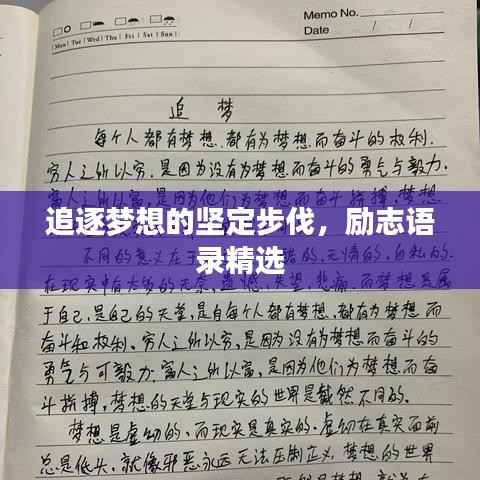 Memo No.
Mon Tue Wed Thu Fri Sat Sun
Date / /
追 梦
每个人都有梦想.都有为梦想而奋斗的权利.
穷人之所以穷.是因为没有为梦想而奋斗的勇气与毅力.
追逐梦想的坚定步伐，励志语
录精选
不同的意义在于
无情的,自私的.
在现实中有太多的无奈
悲痛.而梦想是属
于自己,是自己的天堂,是自每个人都有梦想.都有为梦想而
奋斗和权利.穷人之所以穷,是因为没有为梦想而奋斗的
勇气与可毅力.富人之所以富,是因为他们为梦想而奋
斗拼搏,梦想的天堂与现实的世界是截然不同的.
梦想是虚幻的,而现实是真实的.虚幻在真实面前
总是低头,就像邪恶永远无法压制正义,梦想的世界